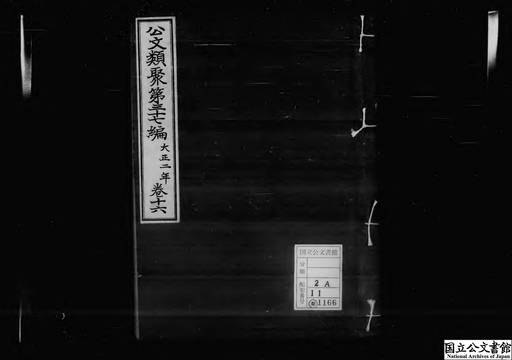 公文類聚第三十七編 大正二年 巻十六
国立公文書館
分類
配架番号
2 A
11
1166
国立公文書館
National Archives of Japan